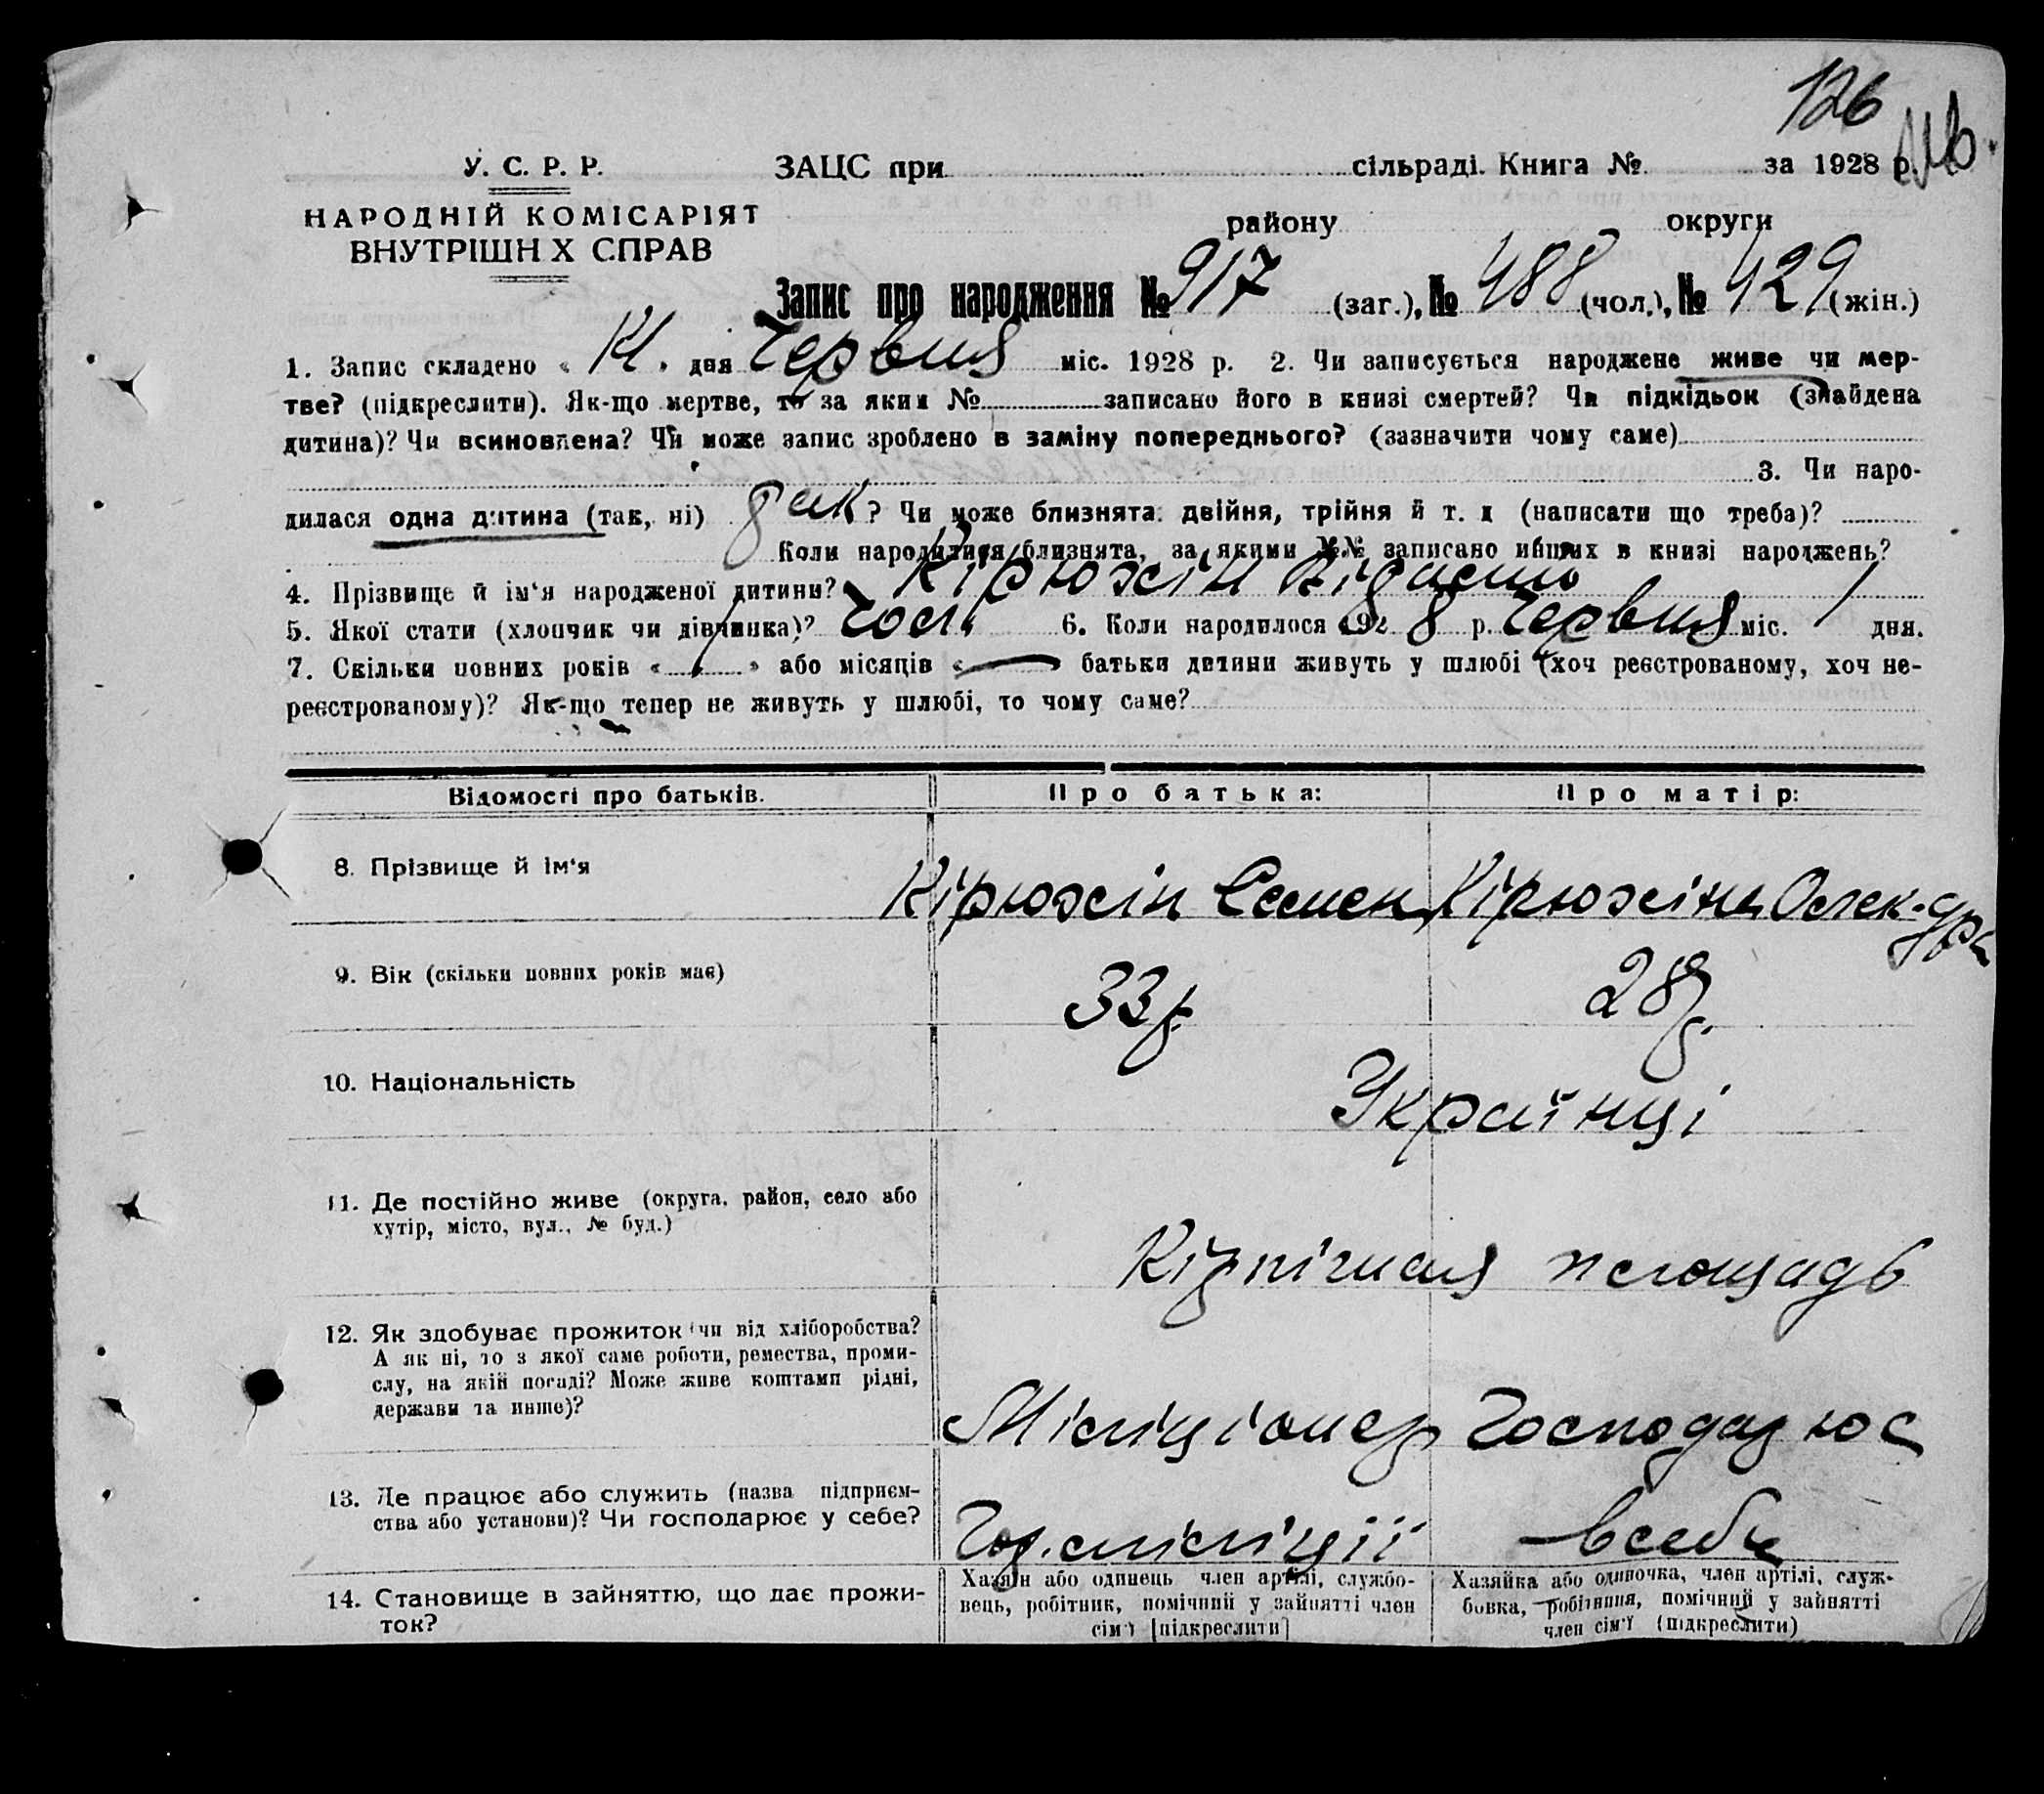 126
У. С. Р. Р.   ЗАЦС при сільраді. Книга № за 1928 р.
НАРОДНІЙ КОМІСАРІЯТ   району округи
ВНУТРІШН Х СПРАВ
Запис про народження № 917 (заг.), № 488 (чол.), № 429 (жін.)
1. Запис складено « » дня Червня міс. 1928 р. 2. Чи записується народжене живе чи мер-
тве? (підкреслити). Як-що мертве, то за яким № записано його в книзі смертей? Чи підкідьок (знайдена
дитина)? Чи всиновлена? Чи може запис зроблено в заміну попереднього? (зазначити чому саме)
3. Чи наро-
дилася одна дитина (так, ні) так? Чи може близнята: двійня, трійня й т. д (написати що треба)?
Коли народилися близнята, за якими №№ записано инших в книзі народжень?
4. Прізвище й ім'я народженої дитини? Кірюхін
5. Якої стати (хлопчик чи дівчинка)? Чол. 6. Коли народилося 1928 р. Червня міс. 1 дня.
7. Скільки повних років « 1 » або місяців « — » батьки дитини живуть у шлюбі (хоч реєстрованому, хоч не-
реєстрованому)? Як-що тепер не живуть у шлюбі, то чому саме?
Відомості про батьків.   Про батька:   Про матір:
8. Прізвище й ім'я   Кірюхін Семен   Кірюхіна Олек-дра
9. Вік (скільки повних років має)   33 р.   28 р.
10. Національність   Українці
11. Де постійно живе (округа, район, село або
хутір, місто, вул., № буд.)   Кірпічная площадь
12. Як здобуває прожиток (чи від хліборобства?
А як ні, то з якої саме роботи, ремества, проми-
слу, на якій посаді? Може живе коштами рідні,
держави та инше)?   Міліціонер   Господарює
13. Де працює або служить (назва підприєм-
ства або установи)? Чи господарює у себе?   Гор. міліції   в себе
14. Становище в зайняттю, що дає прожи-
ток?
Хазяїн або одинець член артілі, службо-
вець, робітник, помічний у зайнятті член
сім'ї [підкреслити]
Хазяйка або одиночка, член артілі, служ-
бовка, робітниця, помічний у зайнятті
член сім'ї (підкреслити)